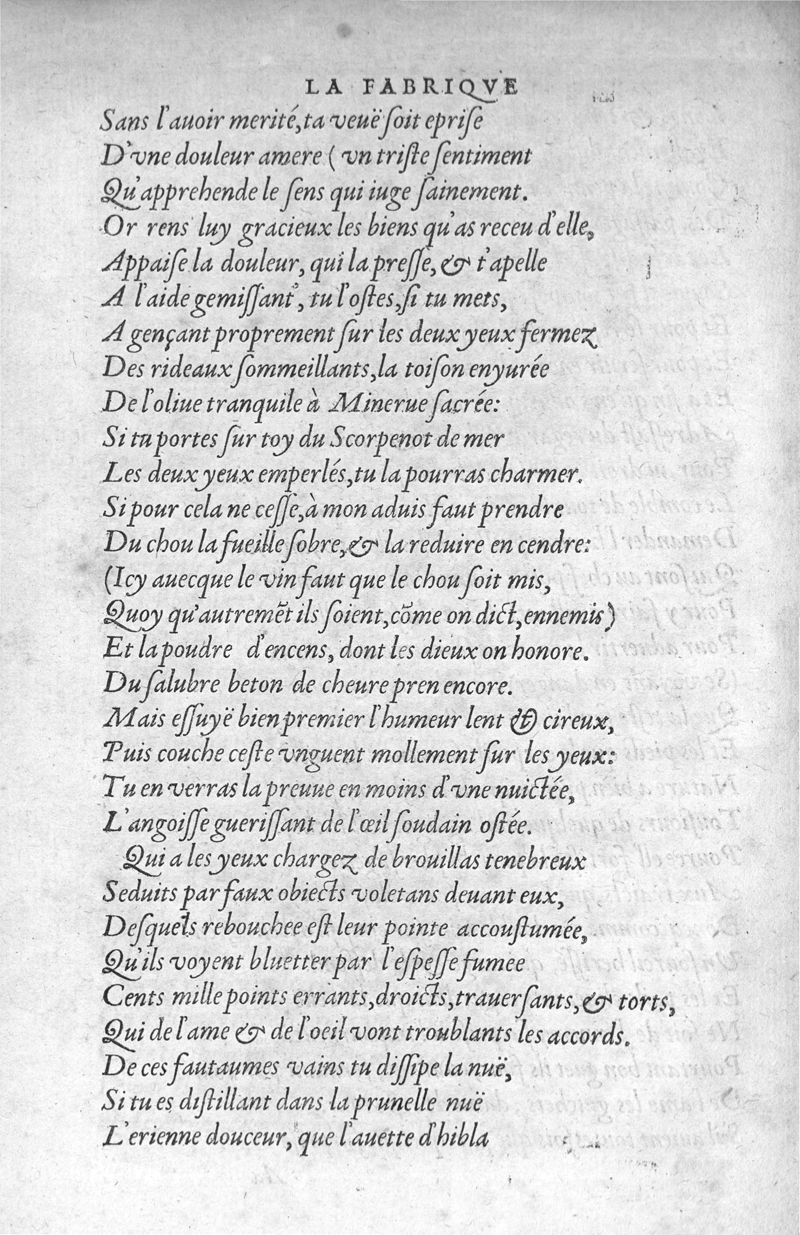 LA FABRIQVE
Sans l'auoir merité, ta veuë ſoit epriſe
D'vne douleur amere ( vn triſte ſentiment
Qu'apprehende le ſens qui iuge ſainement.
Or rens luy gracieux les biens qu'as receu d'elle,
Appaiſe la douleur, qui la preſſe, & t'apelle
A l'aide gemiſſant, tu l'oſtes, ſi tu mets,
A gençant proprement ſur les deux yeux fermez
Des rideaux ſommeillants, la toiſon enyurée
De l'oliue tranquile à Minerue ſacrée:
Si tu portes ſur toy du Scorpenot de mer
Les deux yeux emperlés, tu la pourras charmer.
Si pour cela ne ceſſe, à mon aduis faut prendre
Du chou la fueille ſobre, & la reduire en cendre:
(Icy auecque le vin faut que le chou ſoit mis,
Quoy qu'autremēt ils ſoient, cōme on dict, ennemis)
Et la poudre d'encens, dont les dieux on honore.
Du ſalubre beton de cheure pren encore.
Mais eſſuyë bien premier l'humeur lent & cireux,
Puis couche ceſte vnguent mollement ſur les yeux:
Tu en verras la preuue en moins d'vne nuictée,
L'angoiſſe gueriſſant de l'œil ſoudain oſtée.
Qui a les yeux chargez de brouillas tenebreux
Seduits par faux obiects voletans deuant eux,
Deſquels rebouchee eſt leur pointe accouſtumée,
Qu'ils voyent bluetter par l'eſpeſſe fumee
Cents mille points errants, droicts, trauerſants, & torts,
Qui de l'ame & de l'oeil vont troublants les accords.
De ces fautaumes vains tu diſſipe la nuë,
Si tu es diſtillant dans la prunelle nuë
L'erienne douceur, que l'auette d'hibla